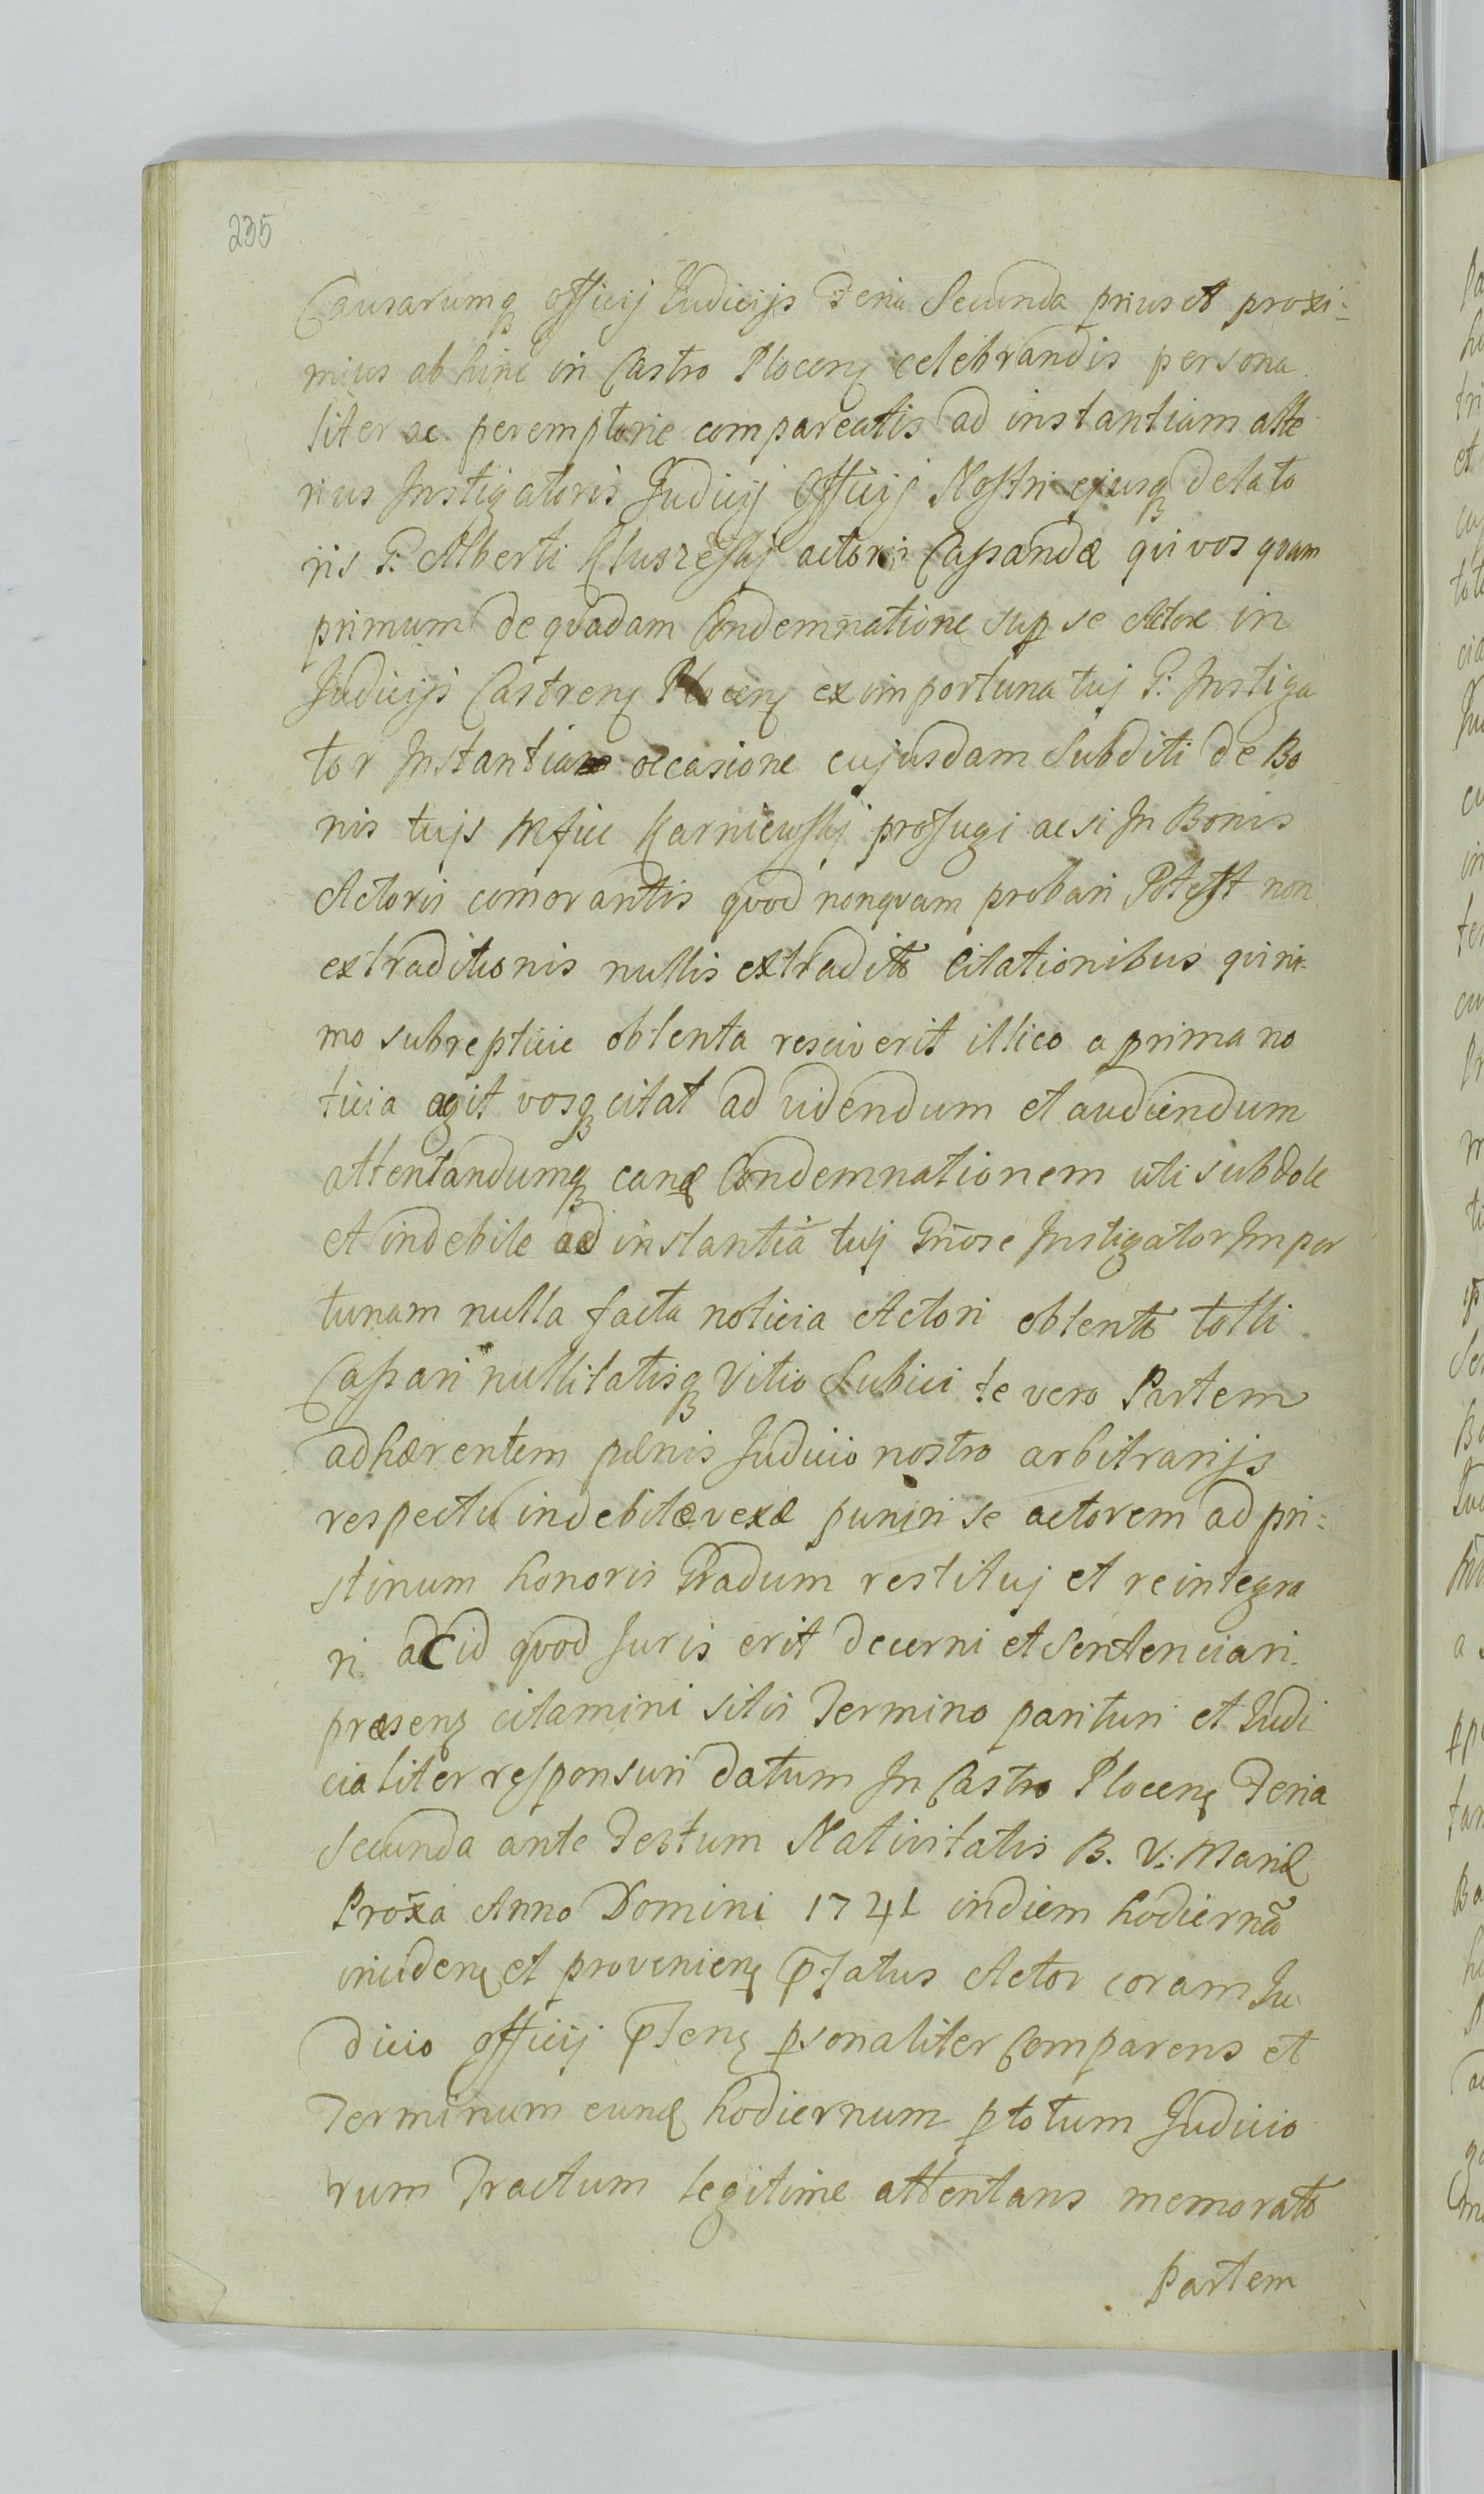 235
Causarumq officij Iudicijs Feria Secunda prius et proxi-
mius abhinc in Castro Plocen celebrandis persona
liter ac peremptorie compareatis ad instantiam alte
rius Instigatoris Judicij Officij Nostri ejusq delato
ris G. Alberti actoris Cassandæ qui vos quam
primum de quadam Condemnatione sup se Actore in
Judicijs Castren Plocen ex importuna tuj G: Instiga
tor Instantia occasione cujusdam Subditi de Bo
nis tujs Mfice Karniewskj profugi acsi In Bonis
Actoris comorantis quod nonquam probari Potest non
extraditionis nullis extraditis Citationibus quini-
mo subrepticie obtenta resciverit illico a prima no
ticia agit vosq citat ad videndum et audiendum
attentandumq eand Condemnationem uti subdole
et indebite ad instantiã tuj Gnose Instigator Impor
tunam nulla facta noticia Actori obtentã tolli
Cassari nullitatisq Vitio Subici te vero Partem
adhærentem pœnis Judicio nostro arbitrarijs
respectu indebitæ vexæ puniri se actorem ad pri-
stinum honoris Gradum restituj et reintegra
ri ac id quod Juris erit decerni et Sentenciari.
præsens citamini sitis Termino parituri et Iudi
cialiter responsuri datum In Castro Plocen Feria
Secunda ante Festum Nativitatis B. V. Mariæ
Proxã Anno Domini 1741 in diem hodiernã
inciden et provenien pfatus Actor coram Ju
dicio officij pnten psonaliter Comparens et
Terminum eund hodiernum p totum Judicio
rum Tractum legitime attentans memoratã
Partem